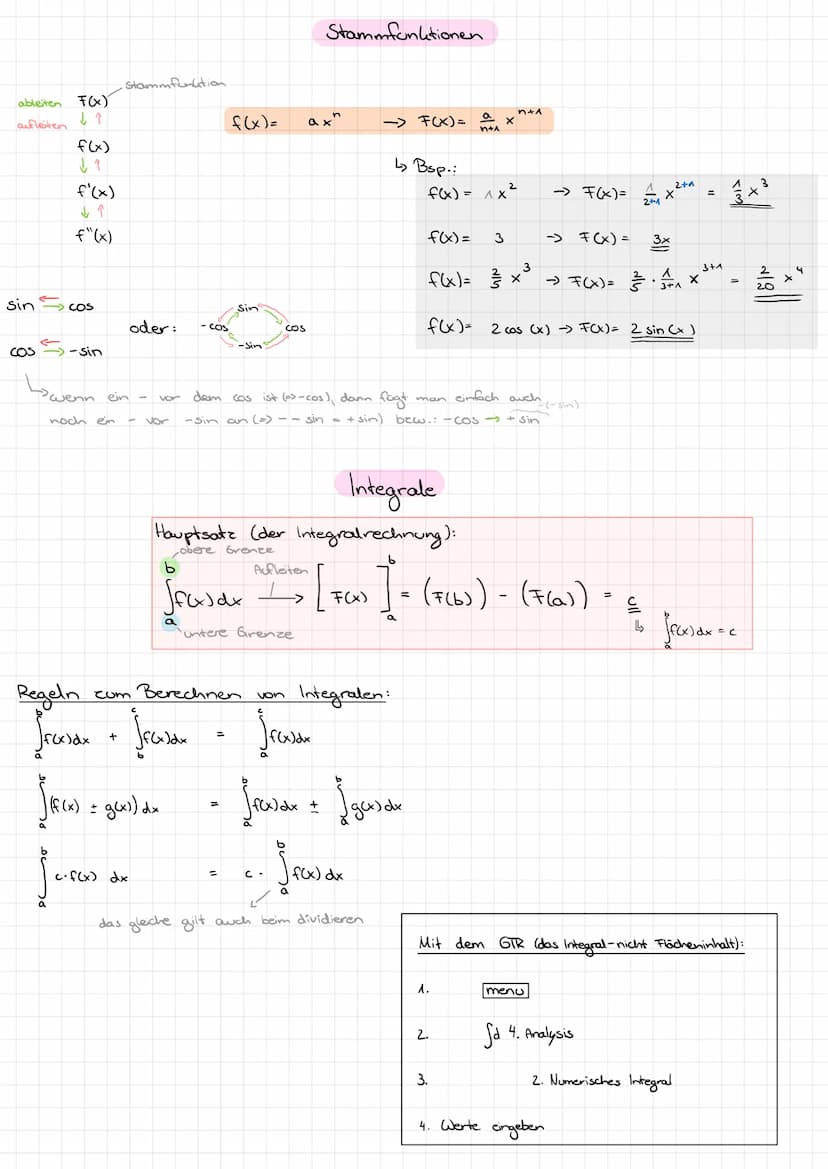 Stammfunktionen
Stammfunktion
ableiten F(x)
aufleiten ↓ ↑
f(x)
↓ ↑
f'(x)
↓ ↑
f"(x)
f(x)= ax^n → F(x)= a/(n+1) x^(n+1)
↳ Bsp.:
f(x) = 1x^2 → F(x)= 1/(2+1) x^(2+1) = 1/3 x^3
f(x) = 3 → F(x) = 3x
f(x)= 2/5 x^3 → F(x)= 2/5 · 1/(3+1) x^(3+1) = 2/20 x^4
f(x)= 2 cos (x) → F(x)= 2 sin(x)
sin ⇄ cos
cos ⇄ -sin
oder:
sin
-cos cos
-sin
↳ wenn ein - vor dem cos ist (=> -cos), dann fügt man einfach auch
-(-sin)
noch ein - vor -sin an (=> - - sin = + sin) bzw.: -cos → + sin
Integrale
Hauptsatz (der Integralrechnung):
obere Grenze
b Aufleiten b
∫f(x)dx → [F(x)] = (F(b)) - (F(a)) = c
a a
untere Grenze
↳ ∫_a^b f(x)dx = c
Regeln zum Berechnen von Integralen:
∫_a^b f(x)dx + ∫_b^c f(x)dx = ∫_a^c f(x)dx
∫_a^b (f(x) ± g(x)) dx = ∫_a^b f(x)dx ± ∫_a^b g(x)dx
∫_a^b c·f(x) dx = c · ∫_a^b f(x) dx
das gleiche gilt auch beim dividieren
Mit dem GTR (das Integral-nicht Flächeninhalt):
1. menu
2. ∫d 4. Analysis
3. 2. Numerisches Integral
4. Werte eingeben